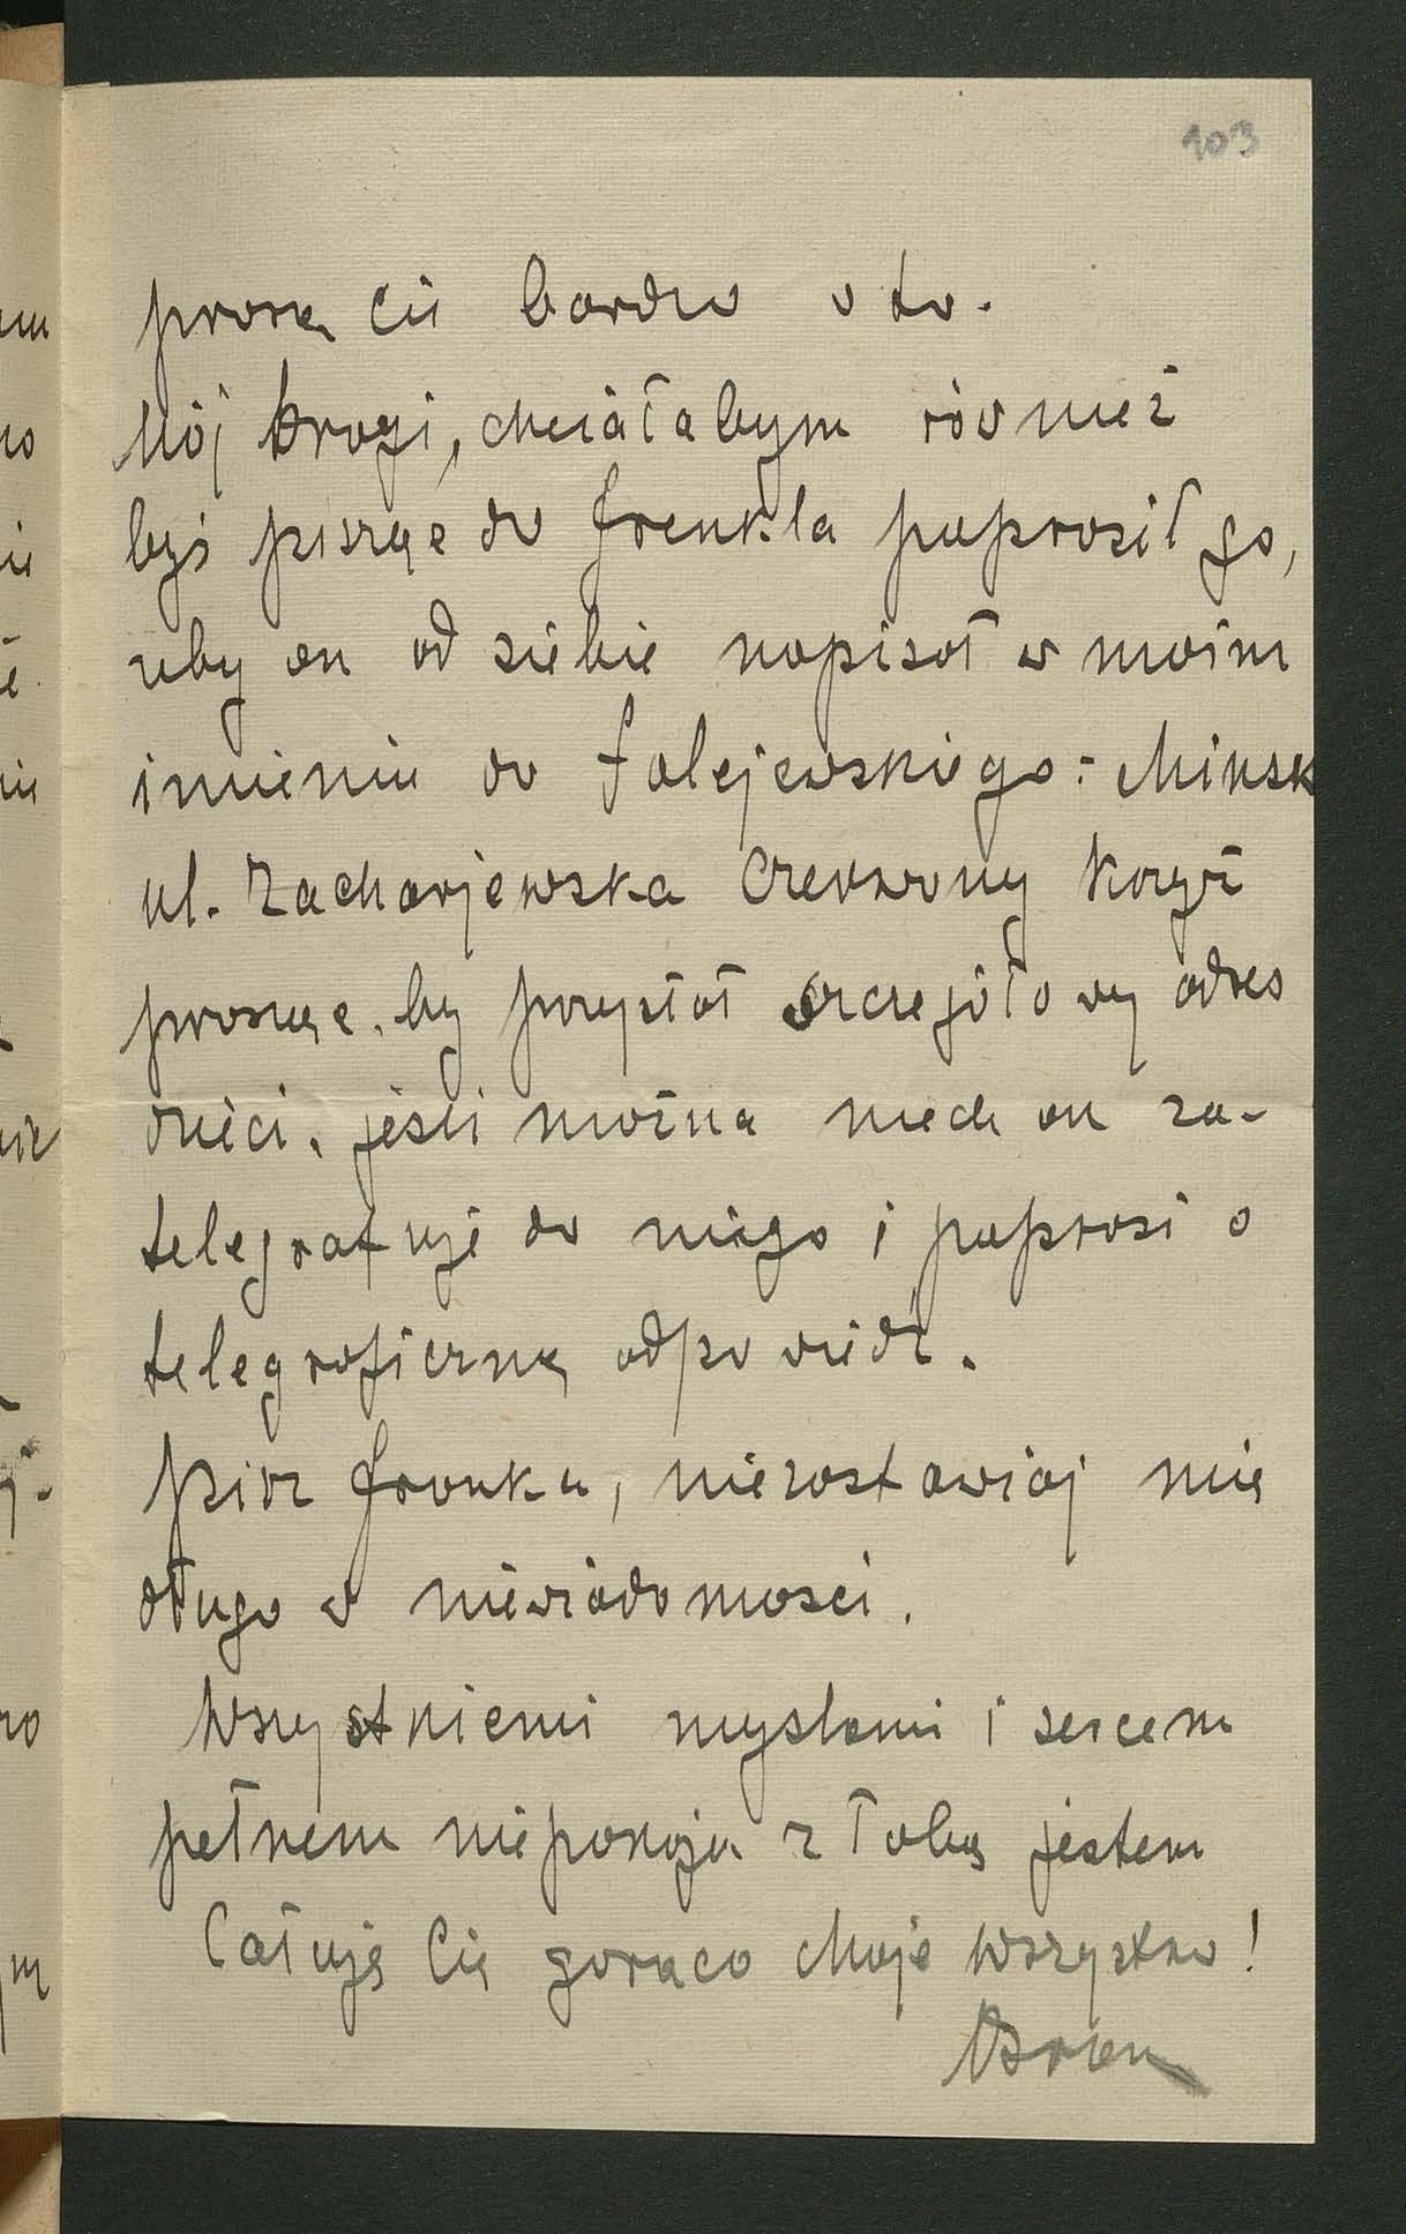 103
proszę Cię bardzo o to.
Mój drogi, chciałabym również
byś pisząc do Frenkla poprosił go,
żeby on od siebie napisał w moim
imieniu do Falejewskiego: Minsk
ul. Zacharjewska Czerwony Krzyż
prosząc, by przysłał szczegółowy adres
dzieci. Jeśli można niech on za-
telegrafuje do niego i poprosi o
telegraficzną odpowiedź.
Pisz Franku, niezostawiaj mię
długo w niewiadomosci.
Wszystkiemi myslami i sercem
pełnem niepokoju z Tobą jestem
Całuję Cię gorąco Moje Wszystko!